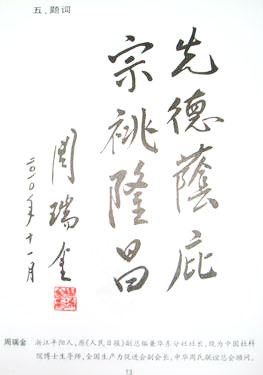 五、题词
先德荫庇
宗祧隆昌
周瑞金
二〇一〇年十一月
周瑞金 浙江平阳人,原《人民日报》副总编兼华东分社社长,现为中国社科
院博士生导师,全国生产力促进会副会长,中华周氏联谊总会顾问。
13